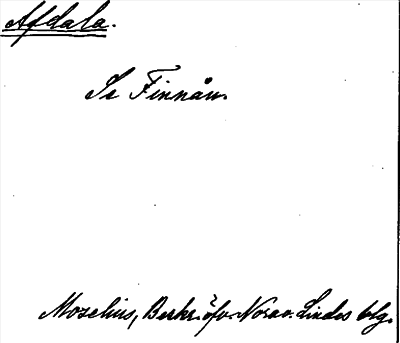 Afdala.
Se Finnån.
Moselius, Berkr. öfv. Nora o. Lindes blg.